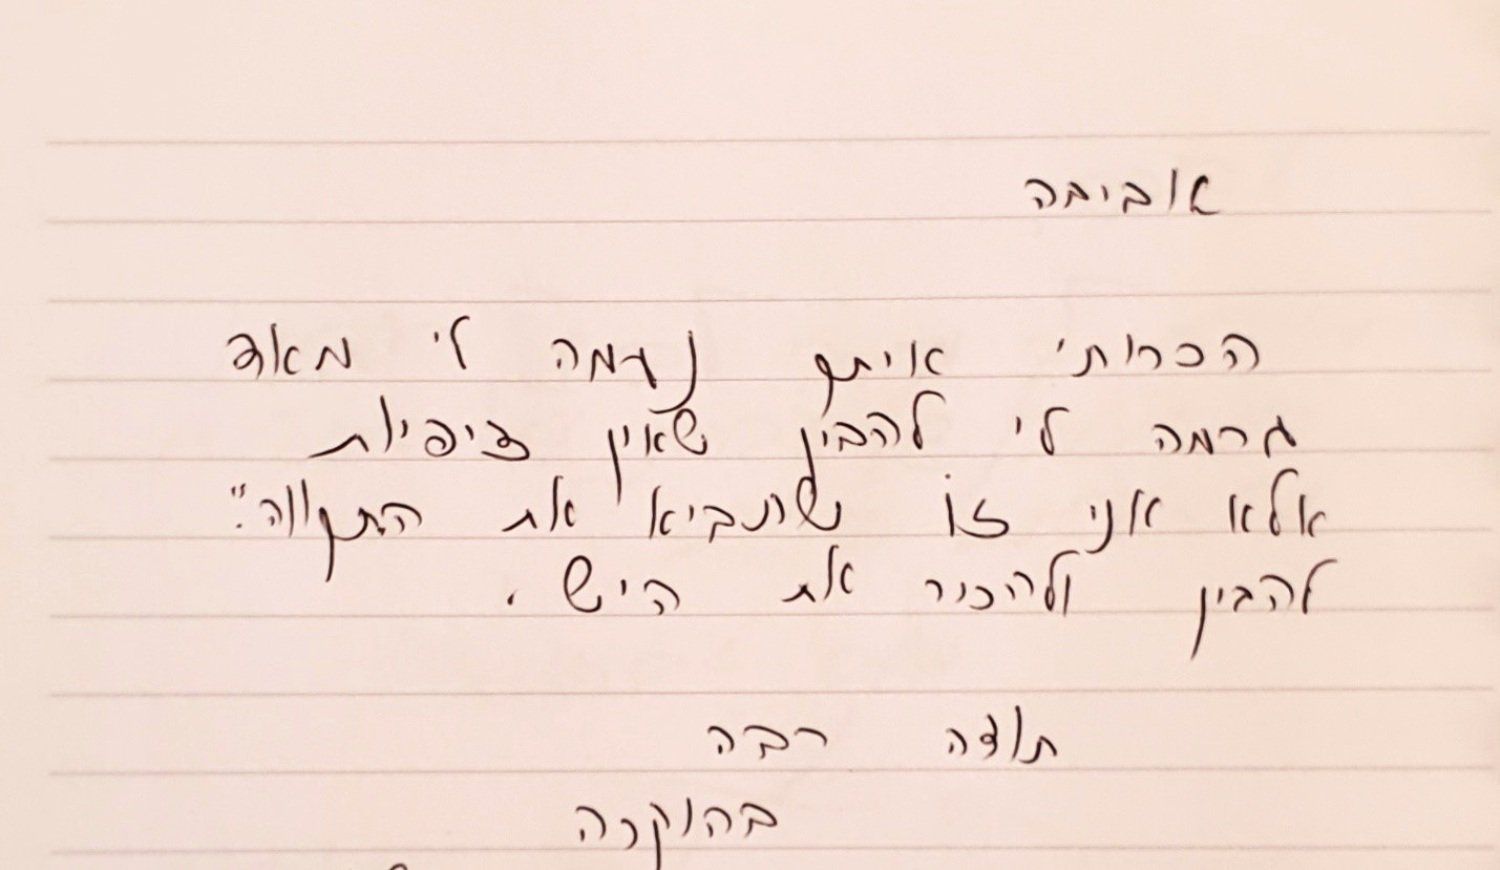 אביבה
הכרותי איתך נגמה לי מאוד
גרמה לי להבין שאין ציפיות
אלא אני זו שתביא את התקווה."
להבין ולהכיר את היש.
תודה רבה
בהוקרה